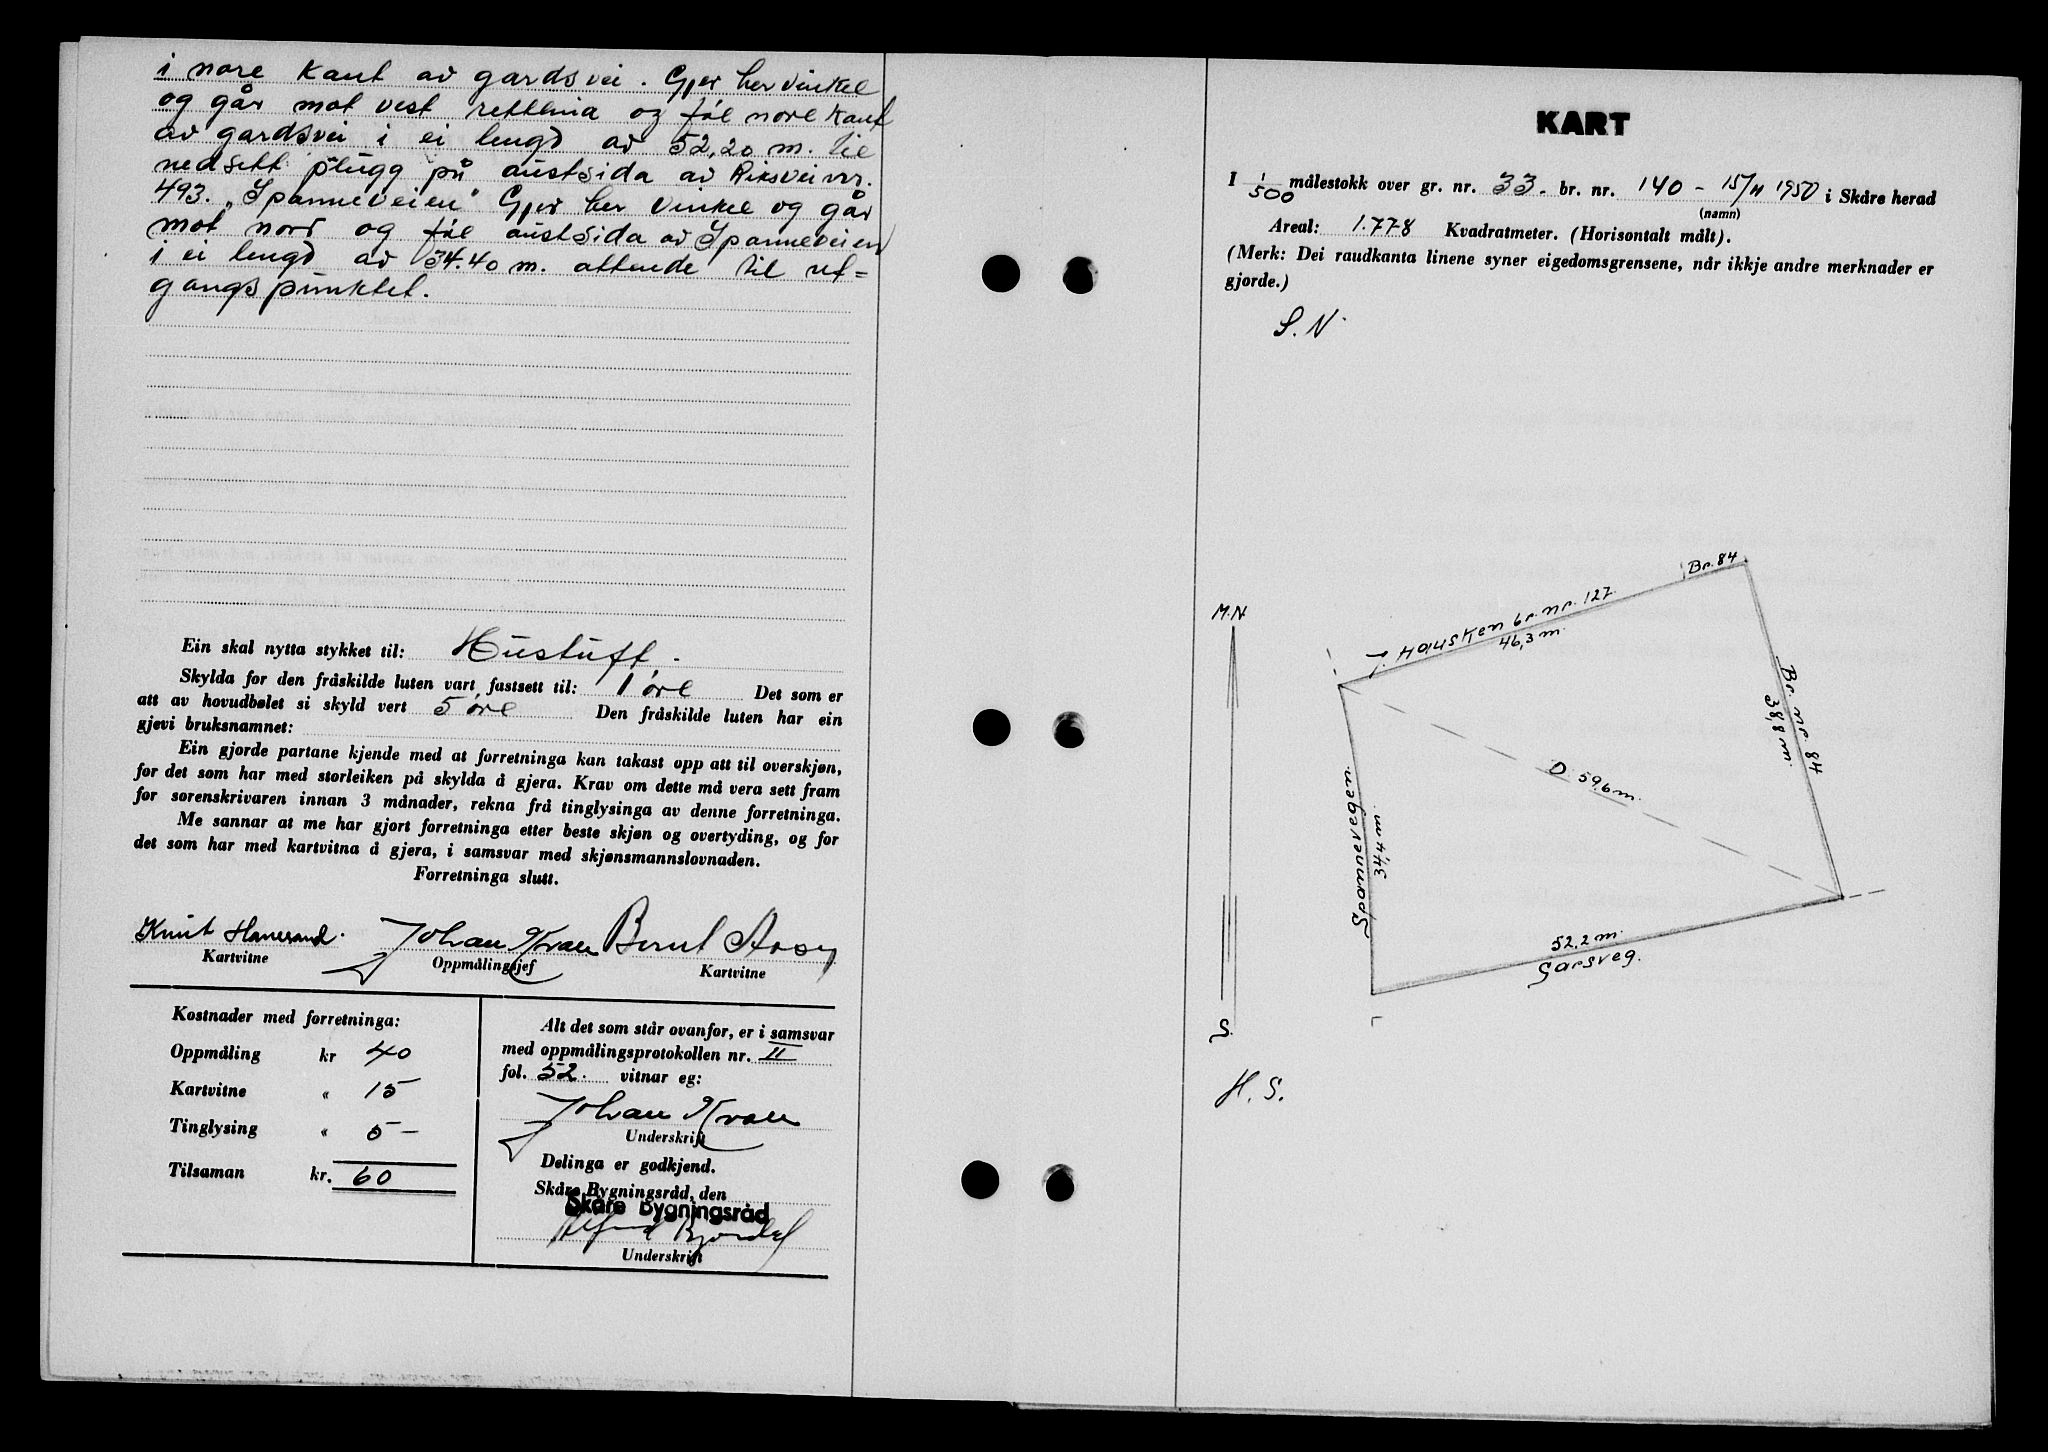 i nore kant av gardsvei. Gjer her vinkel
og går mot vest rettlinia og føl nore kant
av gardsvei i ei lengd av 52,20 m. til
nedsett plugg på austsida av Riksvei nr.
493. "Spanneveien" Gjer her vinkel og går
mot nord og føl austsida av Spanneveien
i ei lengd av 34.40 m. attende til ut=
gangspunktet.
Ein skal nytta stykket til: Hustuft.
Skylda for den fråskilde luten vart fastsett til: 1 øre Det som er
att av hovudbølet si skyld vert 5 øre Den fråskilde luten har ein
gjevi bruksnamnet:
Ein gjorde partane kjende med at forretninga kan takast opp att til overskjøn,
for det som har med storleiken på skylda å gjera. Krav om dette må vera sett fram
for sorenskrivaren innan 3 månader, rekna frå tinglysinga av denne forretninga.
Me sannar at me har gjort forretninga etter beste skjøn og overtyding, og for
det som har med kartvitna å gjera, i samsvar med skjønsmannslovnaden.
Forretninga slutt.
Knut Hanesand. Johan Kvale Bernt
Kartvitne Oppmålingsjef Kartvitne
Kostnader med forretninga:
Oppmåling kr 40
Kartvitne " 15
Tinglysing " 5 –
Tilsaman kr. 60
Alt det som står ovanfor, er i samsvar
med oppmålingsprotokollen nr. II
fol. 52. vitnar eg:
Johan Kvale
Underskrift
Delinga er godkjend.
Skåre Bygningsråd, den
Skåre Bygningsråd
Underskrift
KART
I 1/500 målestokk over gr. nr. 33. br. nr. 140 – 15/11 1950 i Skåre herad
(namn)
Areal: 1.778 Kvadratmeter. (Horisontalt målt).
(Merk: Dei raudkanta linene syner eigedomsgrensene, når ikkje andre merknader er
gjorde.)
S. N.
Br. 84
M.N.
J. Hausken br. nr. 127.
46,3 m.
Br. nr. 84
38,8 m.
D. 59,6 m.
Spannevegen.
34,4 m.
52,2 m.
Garsveg.
S.
H. S.